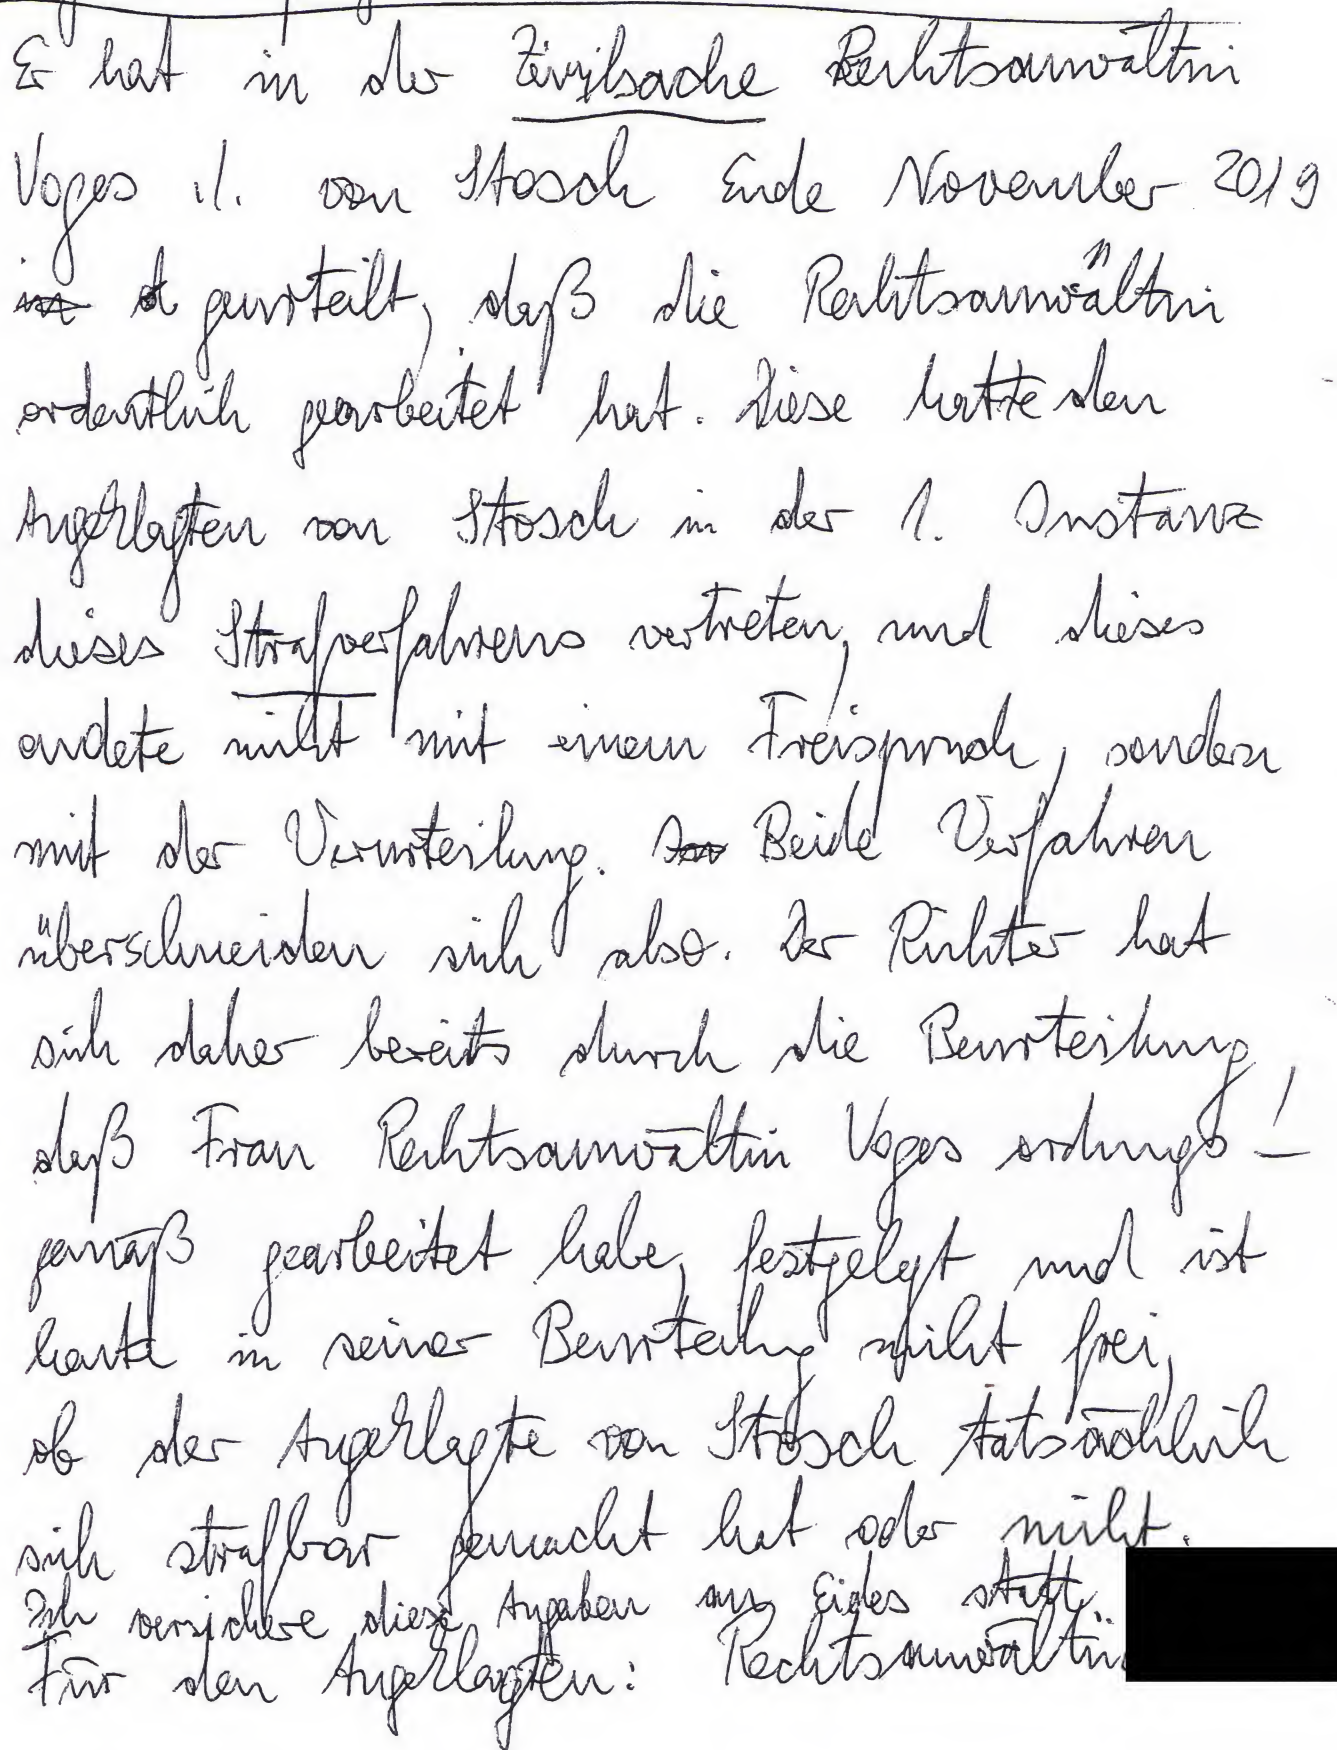 Er hat in der Zivilsache Rechtsanwältin
Voges ./. von Stosch Ende November 2019
geurteilt, daß die Rechtsanwältin
ordentlich gearbeitet hat. Diese hatte den
Angeklagten von Stosch in der 1. Instanz
dieses Strafverfahrens vertreten, und dieses
endete nicht mit einem Freispruch, sondern
mit der Verurteilung. Beide Verfahren
überschneiden sich also. Der Richter hat
sich daher bereits durch die Beurteilung,
daß Frau Rechtsanwältin Voges ordnungs-
gemäß gearbeitet habe, festgelegt und ist
heute in seiner Beurteilung nicht frei,
ob der Angeklagte von Stosch tatsächlich
sich strafbar gemacht hat oder nicht.
Ich versichere diese Angaben an Eides statt.
Für den Angeklagten: Rechtsanwältin